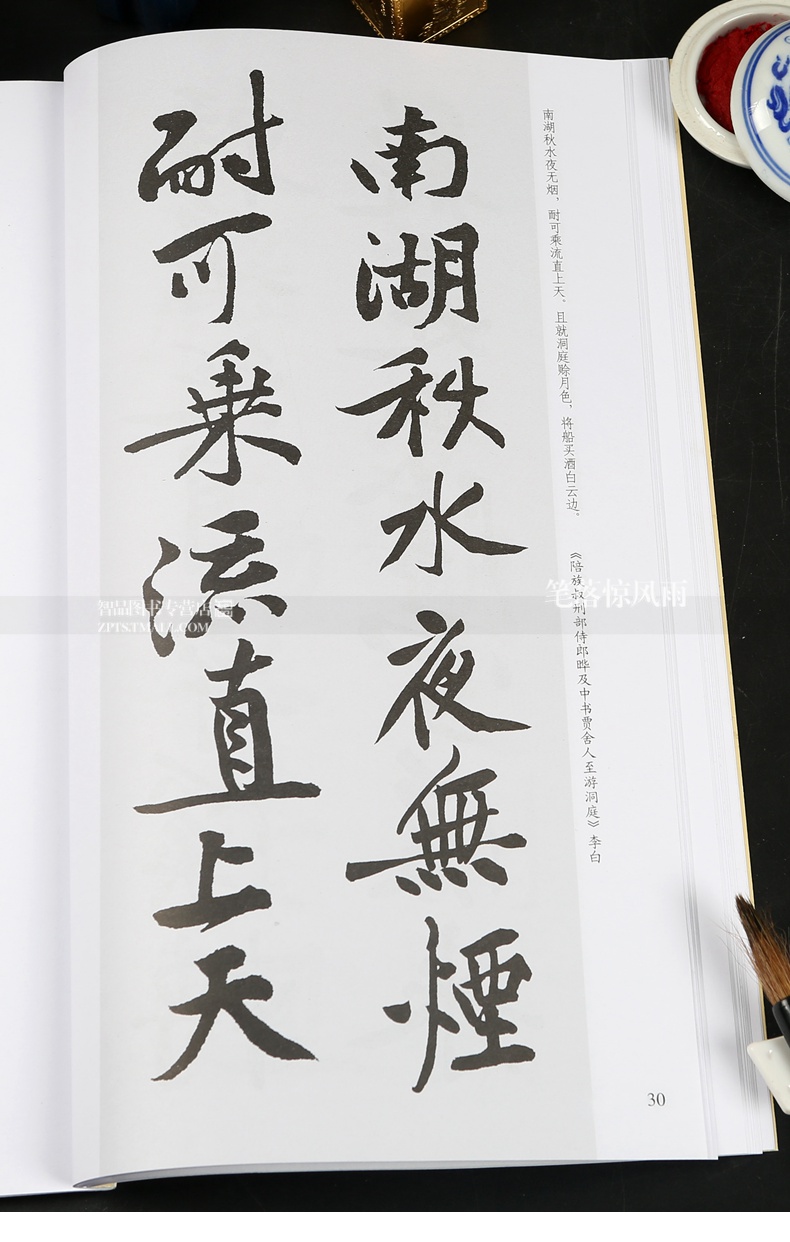 南湖秋水夜無煙
耐可乘流直上天
南湖秋水夜无烟，耐可乘流直上天。且就洞庭赊月色，将船买酒白云边。
《陪族叔刑部侍郎晔及中书贾舍人至游洞庭》李白
笔落惊风雨
智品图书专营店
ZPTS.TMALL.COM
30